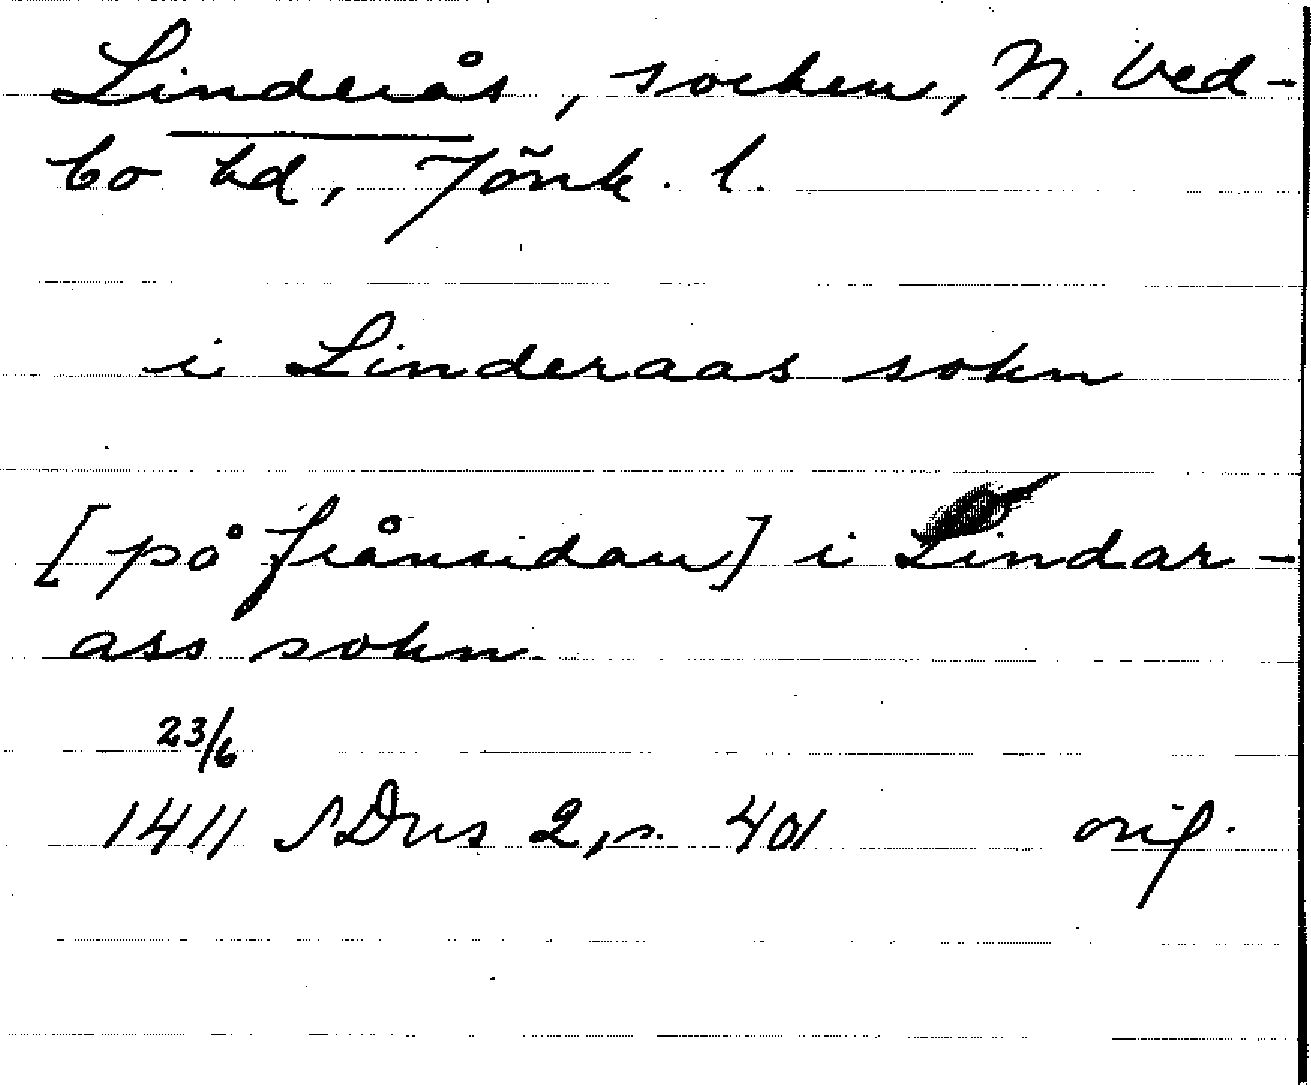 Linderås, socken, N. Ved-
bo hd, Jönk. l.
i Linderaas sokn
[på frånsidan] i Lindar-
ass sokn
23/6
1411 SDns 2, s. 401 orig.